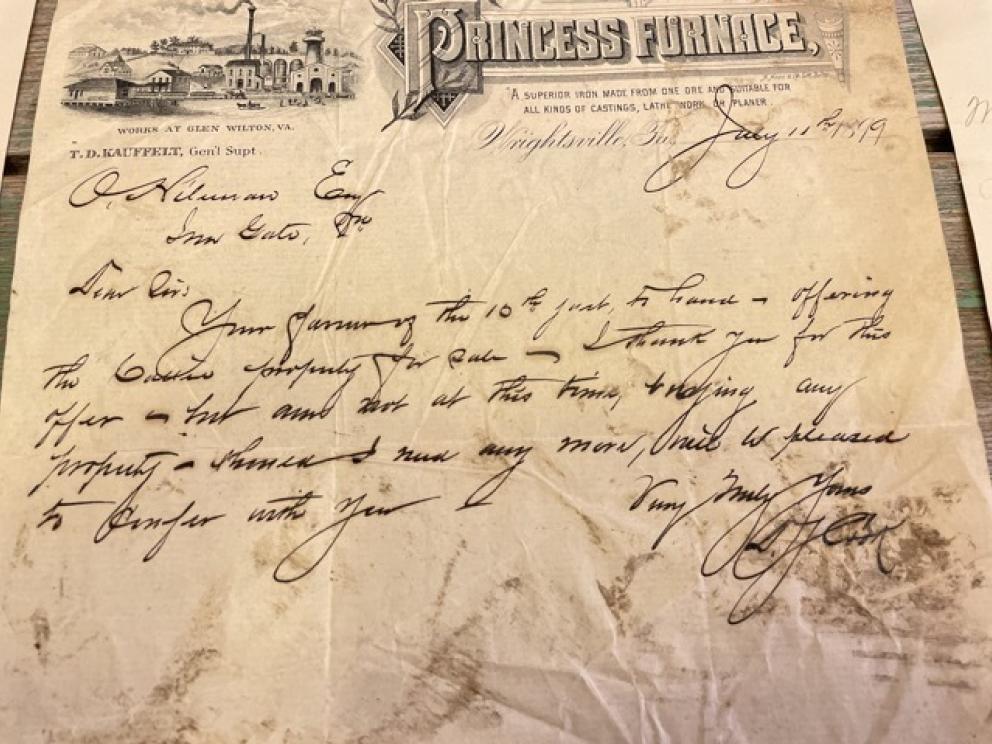 PRINCESS FURNACE,
"A SUPERIOR IRON MADE FROM ONE ORE AND SUITABLE FOR
ALL KINDS OF CASTINGS, LATHE WORK OR PLANER.
WORKS AT GLEN WILTON, VA.
T. D. KAUFFELT, Gen'l Supt.
Wrightsville, Pa. July 11th 1899
O. Hileman Esq
Iron Gate, Va
Dear Sir:
Your favor of the 10th just to hand – offering
the property for sale – I thank you for this
offer – but am not at this time, buying any
property – should I need any more, will be pleased
to confer with you
Very Truly Yours
Cook